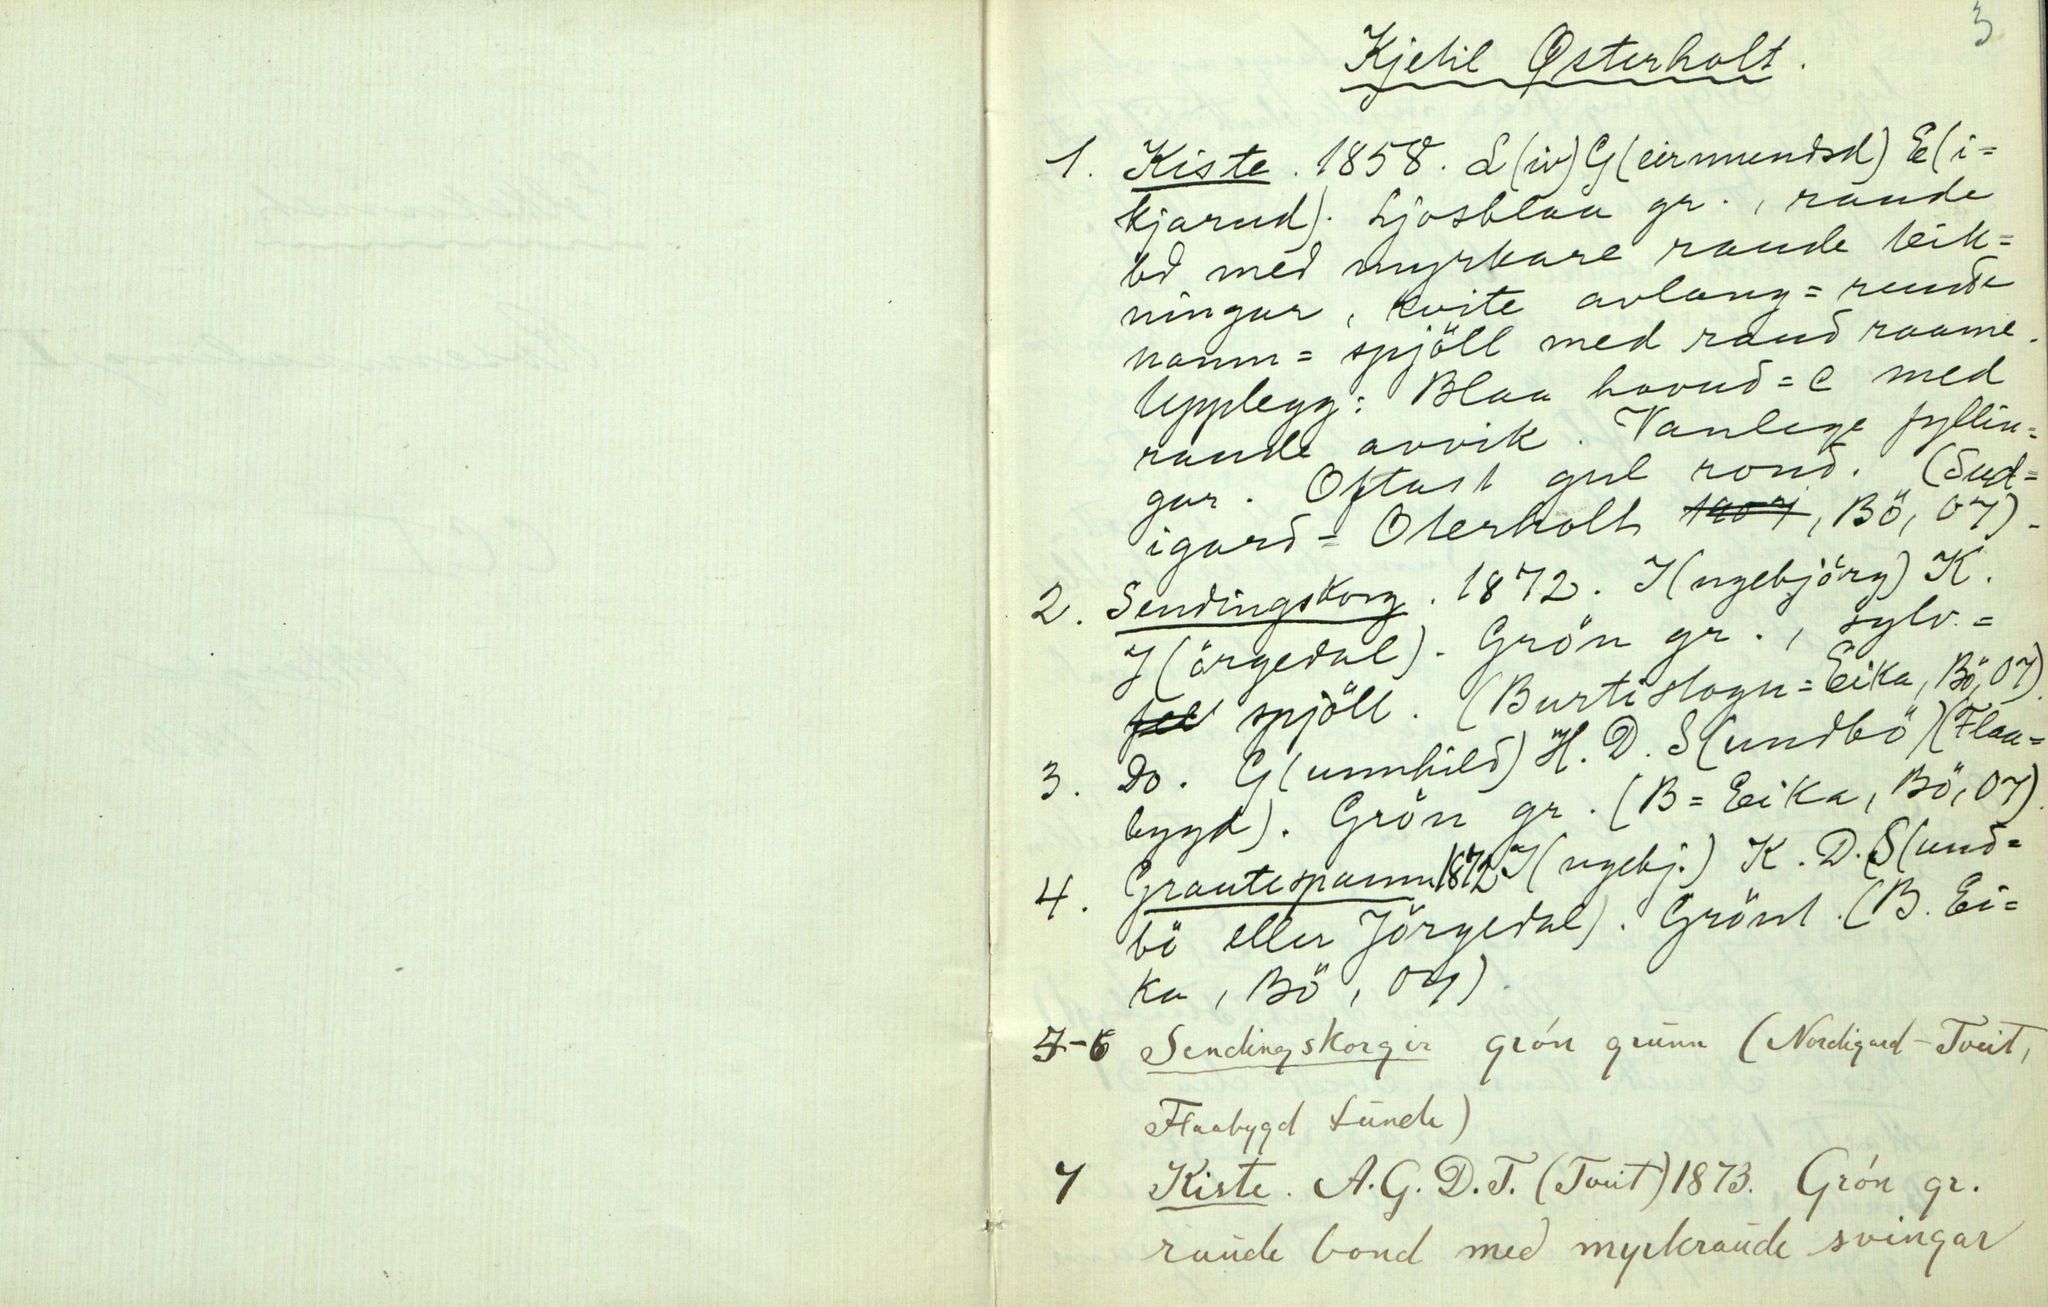 3
Kjetil Østerholt.
1. Kiste. 1858. L(iv) G(eirmundsd) E(i=
kjarud). Ljosblaa gr., raude
bd med myrkare raude teik=
ningar, kvite avlang=runde
namn=spjöll med raud raame.
Upplegg: Blaa hovud=C med
raude avvik. Vanlege fyllin=
gar. Oftast gul rond. (Sud=
igard=Oterholt 1907, Bö, 07).
2. Sendingskorg. 1872. I(ngebjörg) K.
J(örgedal). Grön gr., sylv=
spjöll. (Burtistogu=Eika, Bö, 07).
3. Do. G(unnhild) H. D. S(undbö) (Flaa=
bygd). Grön gr. (B=Eika, Bö, 07).
4. Grautespann 1872 I(ngebj.) K. D. S(und=
bö eller Jörgedal). Grönt. (B. Ei=
ka, Bö, 07).
5-6 Sendingskorger grón grünn (Nordigard-Tveit,
Flaabygd Lünde)
7 Kiste. A.G.D.T. (Tveit) 1873. Grón gr.
raüde bond med myrkraüde svingar